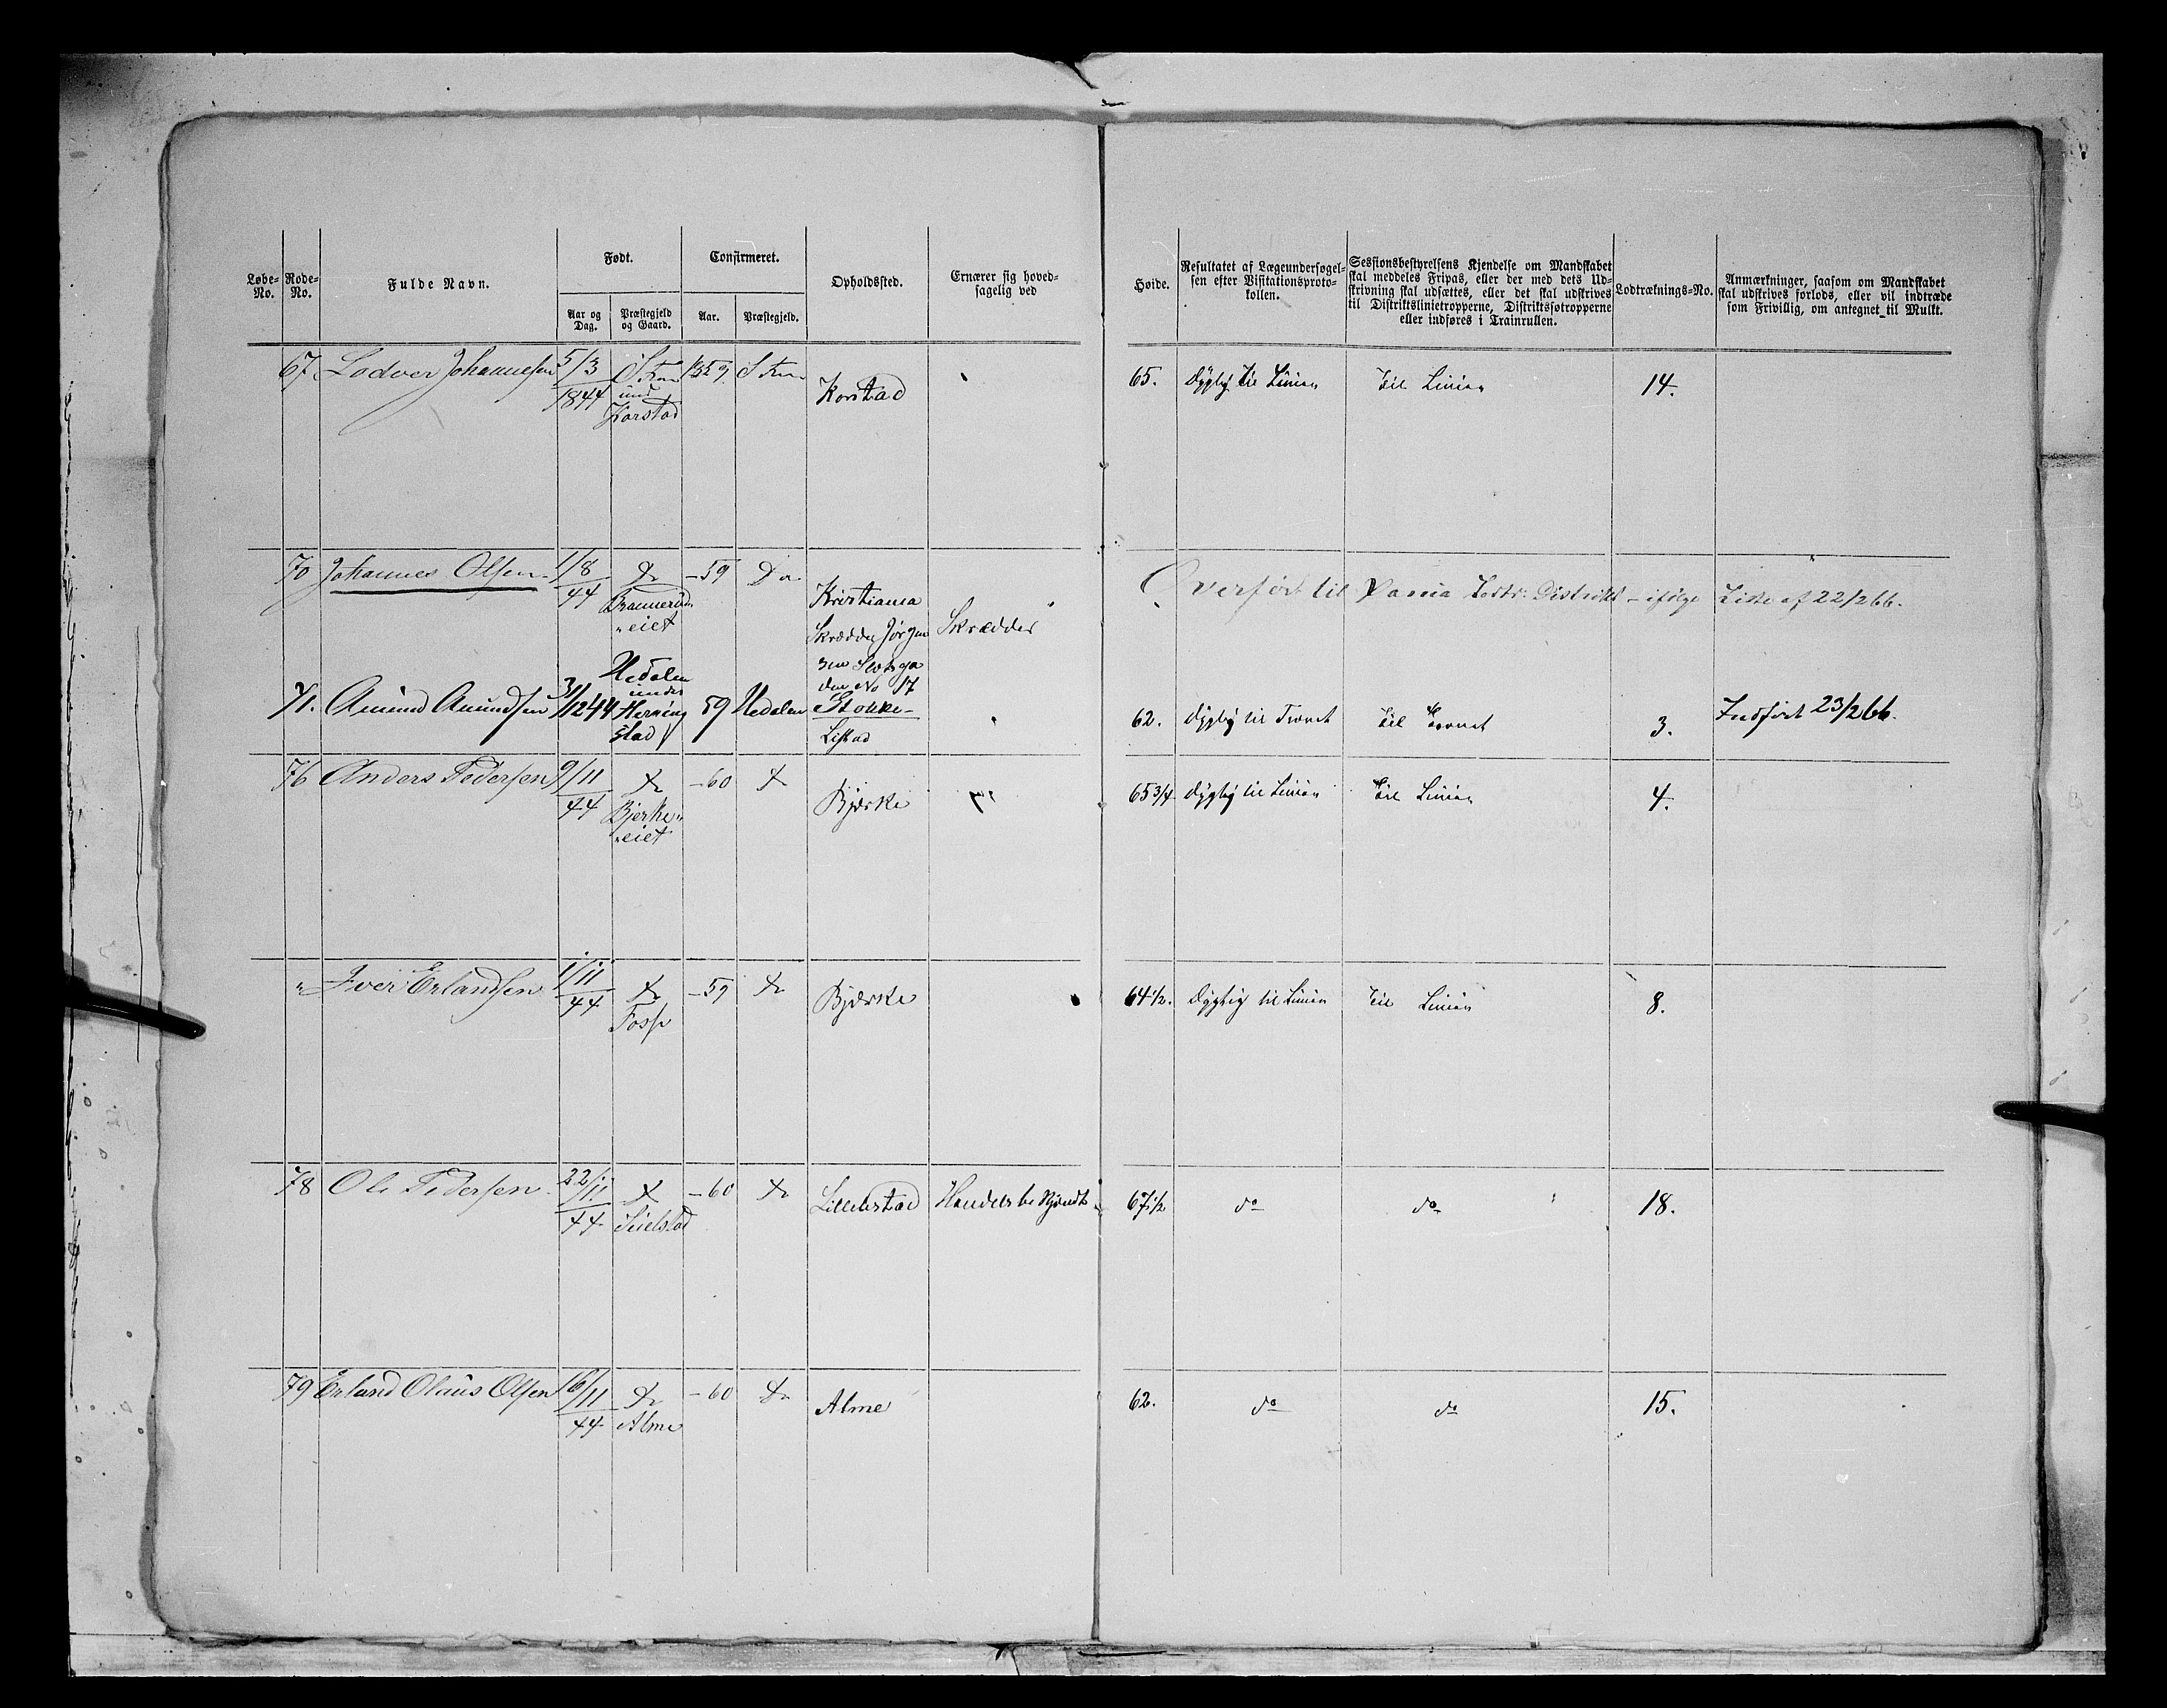 Løbe-No.
Rode-No.
Fulde Navn.
Født.
Aar og Dag.
Præstegjeld og Gaard.
Confirmeret.
Aar.
Præstegjeld.
Opholdssted.
Ernærer sig hoved-
sagelig ved
Høide.
Resultatet af Lægeundersøgel-
sen efter Visitationsproto-
kollen.
Sessionsbestyrelsens Kjendelse om Mandskabet
skal meddeles Fripas, eller der med dets Ud-
skrivning skal udsættes, eller det skal udskrives
til Distriktslinietropperne, Distriktsfotropperne
eller indføres i Trainrullen.
Lodtræknings-No.
Anmærkninger, saasom om Mandskabet
skal udskrives forlods, eller vil indtræde
som Frivillig, om antegnet til Mulkt.
67 Lodver Johannesen 5/3 1844
Korstad
Korstad
65. Dygtig til Linien Til Linien 14.
70 Johannes Olsen 1/8 44 Do
eiet
-59 Do
Kristiania
Skrædder Jørgen
No 17
Skrædder
Overført til Distrikt - ifølge Liste af 22/2 66.
71. Amund Amundsen 31/12 44
Hedalen
under
59 Hedalen
Listad
62. Dygtig til Trainet Til Trainet 3. Indført 23/2 66.
76 Anders Pedersen 9/11 44 Do
Bjerke-
eiet
-60 Do Bjerke
65 3/4 Dygtig til Linien Til Linien 4.
" Iver Erlandsen 1/11 44 Do
Fosse
-59 Do Bjerke
64 1/2. Dygtig til Linien Til Linien 8.
78 Ole Pedersen 22/11 44 Do
-60 Do Lillelstad
67 1/2 do do 18.
79 Erland Olaus Olsen 16/11 44 Do
Alme
-60 Do Alme
62. do do 15.